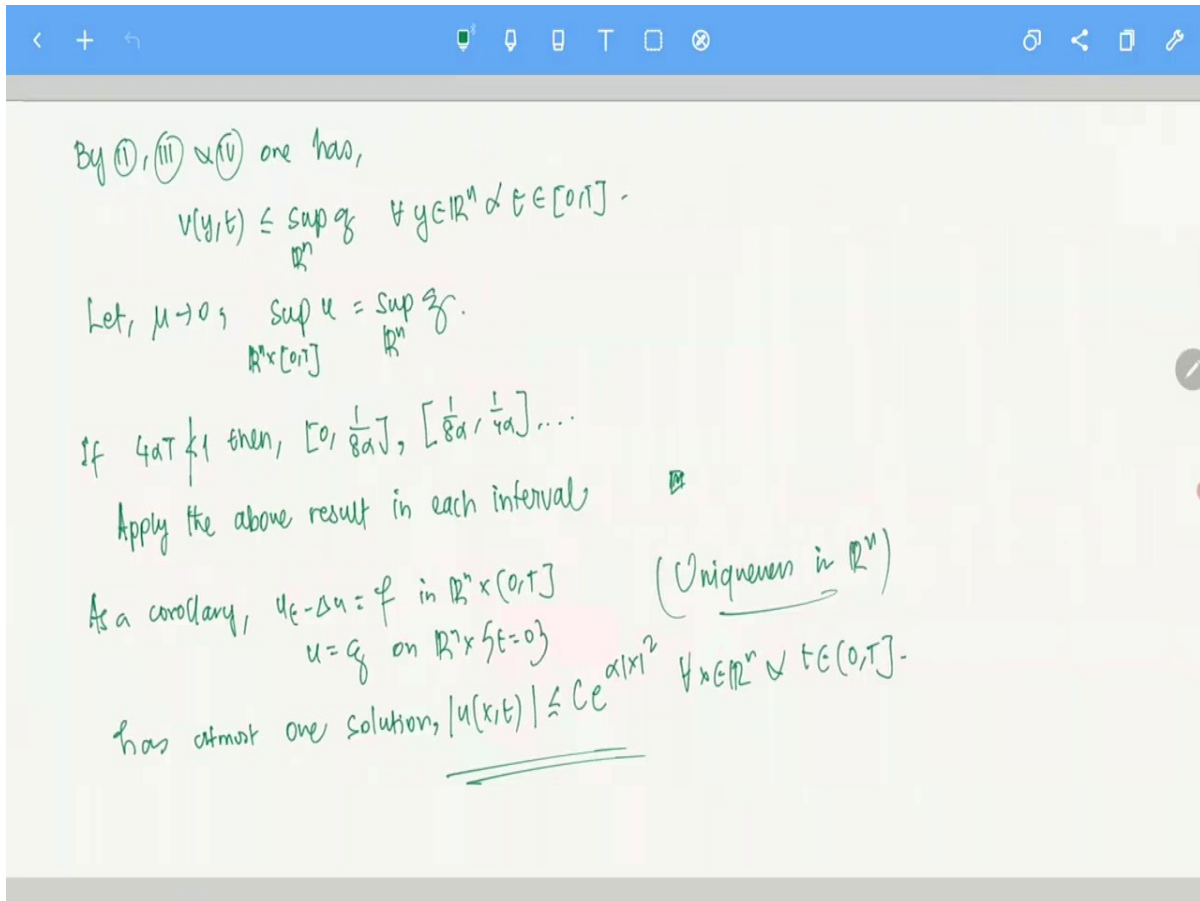 By (II), (III) & (IV) one has,
v(y,t) ≤ sup g ∀ y∈ℝⁿ & t∈[0,T].
ℝⁿ
Let, μ→0, sup u = sup g.
ℝⁿ×[0,T] ℝⁿ
If 4αT ≮ 1 then, [0, 1/8α], [1/8α, 1/4α]....
Apply the above result in each interval
As a corollary, u_t - Δu = f in ℝⁿ×(0,T] (Uniqueness in ℝⁿ)
u = g on ℝⁿ×{t=0}
has atmost one solution, |u(x,t)| ≤ Ce^{α|x|²} ∀ x∈ℝⁿ & t∈(0,T].